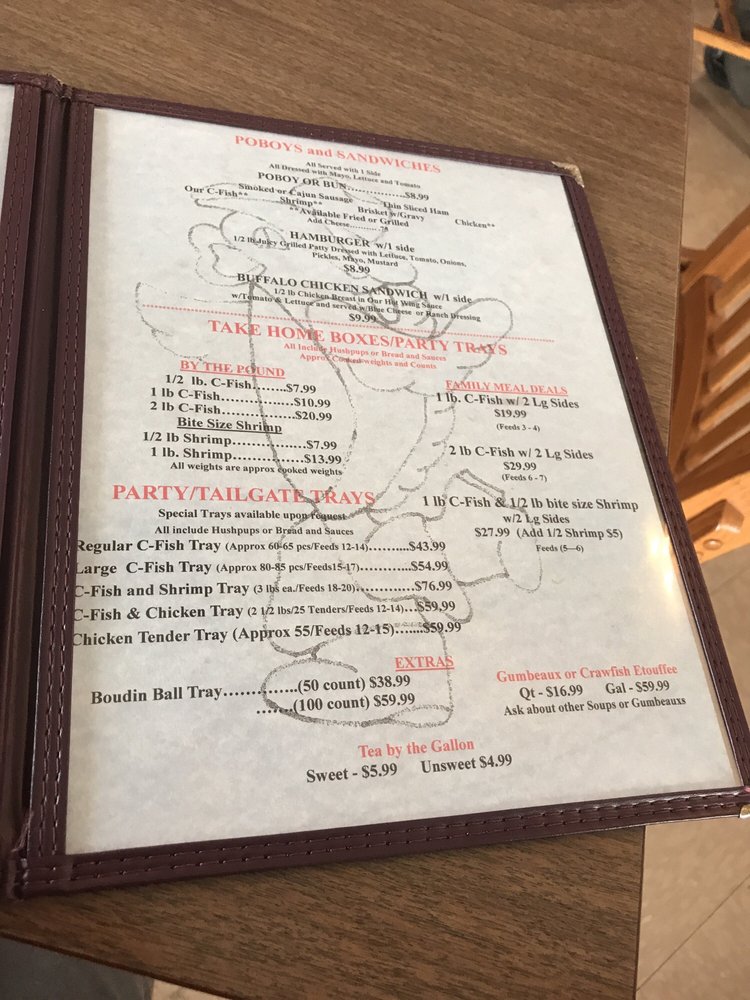 POBOYS and SANDWICHES
All Served with 1 Side
All Dressed with Mayo, Lettuce and Tomato
POBOY OR BUN...............$8.99
Smoked or Cajun Sausage Thin Sliced Ham
Our C-Fish** Shrimp** Brisket w/Gravy Chicken**
**Available Fried or Grilled
Add Cheese...........
HAMBURGER w/1 side
1/2 lb Juicy Grilled Patty Dressed with Lettuce, Tomato, Onions,
Pickles, Mayo, Mustard
$8.99
BUFFALO CHICKEN SANDWICH w/1 side
1/2 lb Chicken Breast in Our Hot Wing Sauce
w/Tomato & Lettuce and served w/Blue Cheese or Ranch Dressing
$9.99
TAKE HOME BOXES/PARTY TRAYS
All Include Hushpups or Bread and Sauces
Approx Cooked weights and Counts
BY THE POUND
1/2 lb. C-Fish........$7.99
1 lb C-Fish................$10.99
2 lb C-Fish................$20.99
Bite Size Shrimp
1/2 lb Shrimp................$7.99
1 lb. Shrimp...............$13.99
All weights are approx cooked weights
FAMILY MEAL DEALS
1 lb. C-Fish w/ 2 Lg Sides
$19.99
(Feeds 3 - 4)
2 lb C-Fish w/ 2 Lg Sides
$29.99
(Feeds 6 - 7)
1 lb C-Fish & 1/2 lb bite size Shrimp
w/2 Lg Sides
$27.99 (Add 1/2 Shrimp $5)
Feeds (5—6)
PARTY/TAILGATE TRAYS
Special Trays available upon request
All include Hushpups or Bread and Sauces
Regular C-Fish Tray (Approx 60-65 pcs/Feeds 12-14)..........$43.99
Large C-Fish Tray (Approx 80-85 pcs/Feeds15-17)............$54.99
C-Fish and Shrimp Tray (3 lbs ea./Feeds 18-20)............$76.99
C-Fish & Chicken Tray (2 1/2 lbs/25 Tenders/Feeds 12-14)...$59.99
Chicken Tender Tray (Approx 55/Feeds 12-15).......$59.99
EXTRAS
Boudin Ball Tray..............(50 count) $38.99
.......(100 count) $59.99
Gumbeaux or Crawfish Etouffee
Qt - $16.99 Gal - $59.99
Ask about other Soups or Gumbeauxs
Tea by the Gallon
Sweet - $5.99 Unsweet $4.99